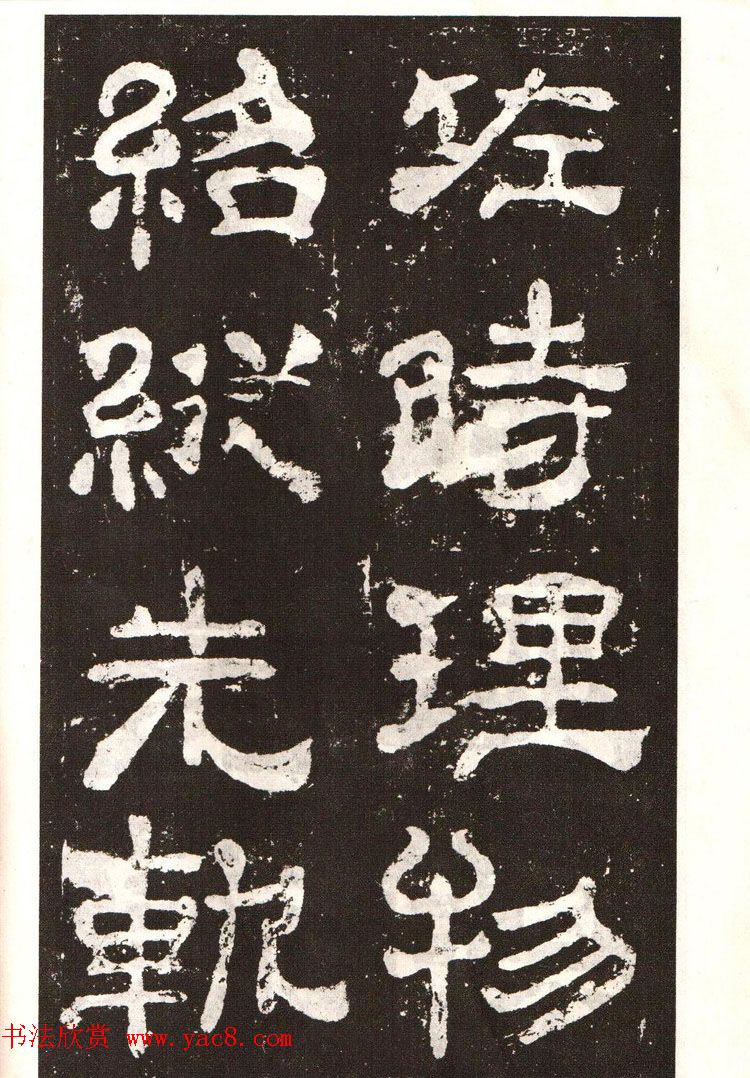 佐時理物
紹縱先軌
书法欣赏 www.yac8.com